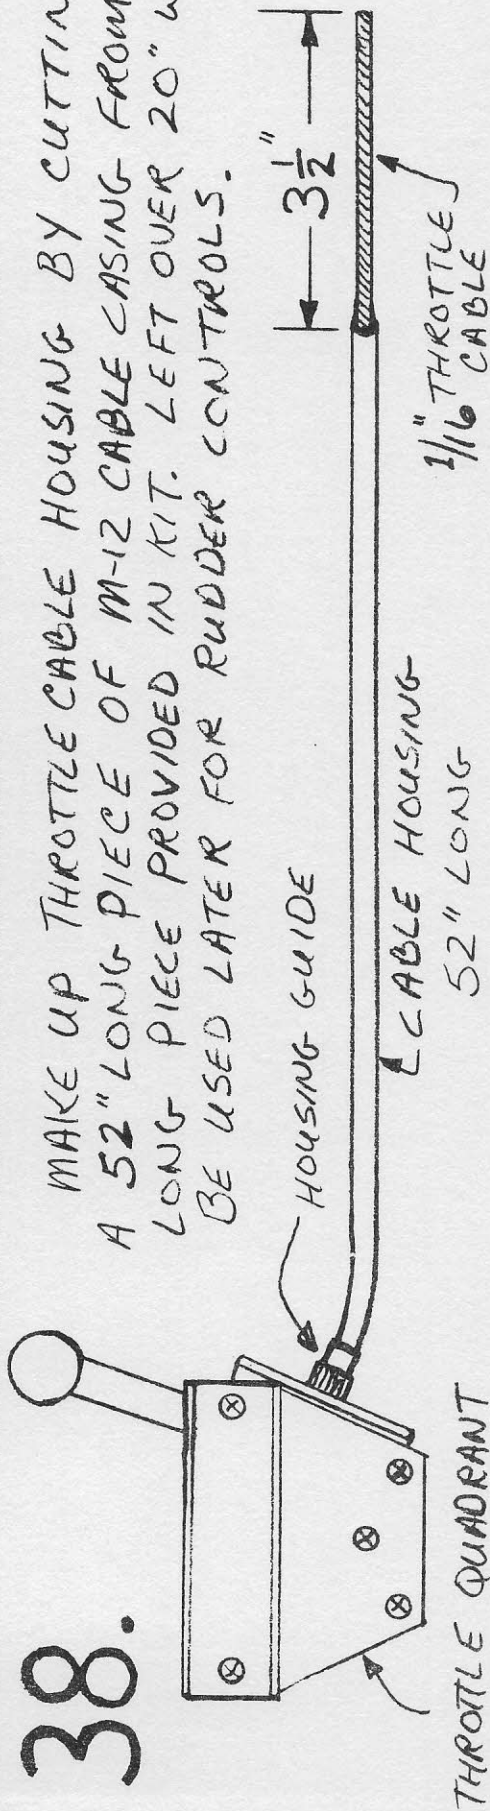 38.
MAKE UP THROTTLE CABLE HOUSING BY CUTTIN
A 52" LONG PIECE OF M-12 CABLE CASING FROM
LONG PIECE PROVIDED IN KIT. LEFT OVER 20" W
BE USED LATER FOR RUDDER CONTROLS.
3 1/2"
HOUSING GUIDE
1/16" THROTTLE
CABLE
CABLE HOUSING
52" LONG
THROTTLE QUADRANT